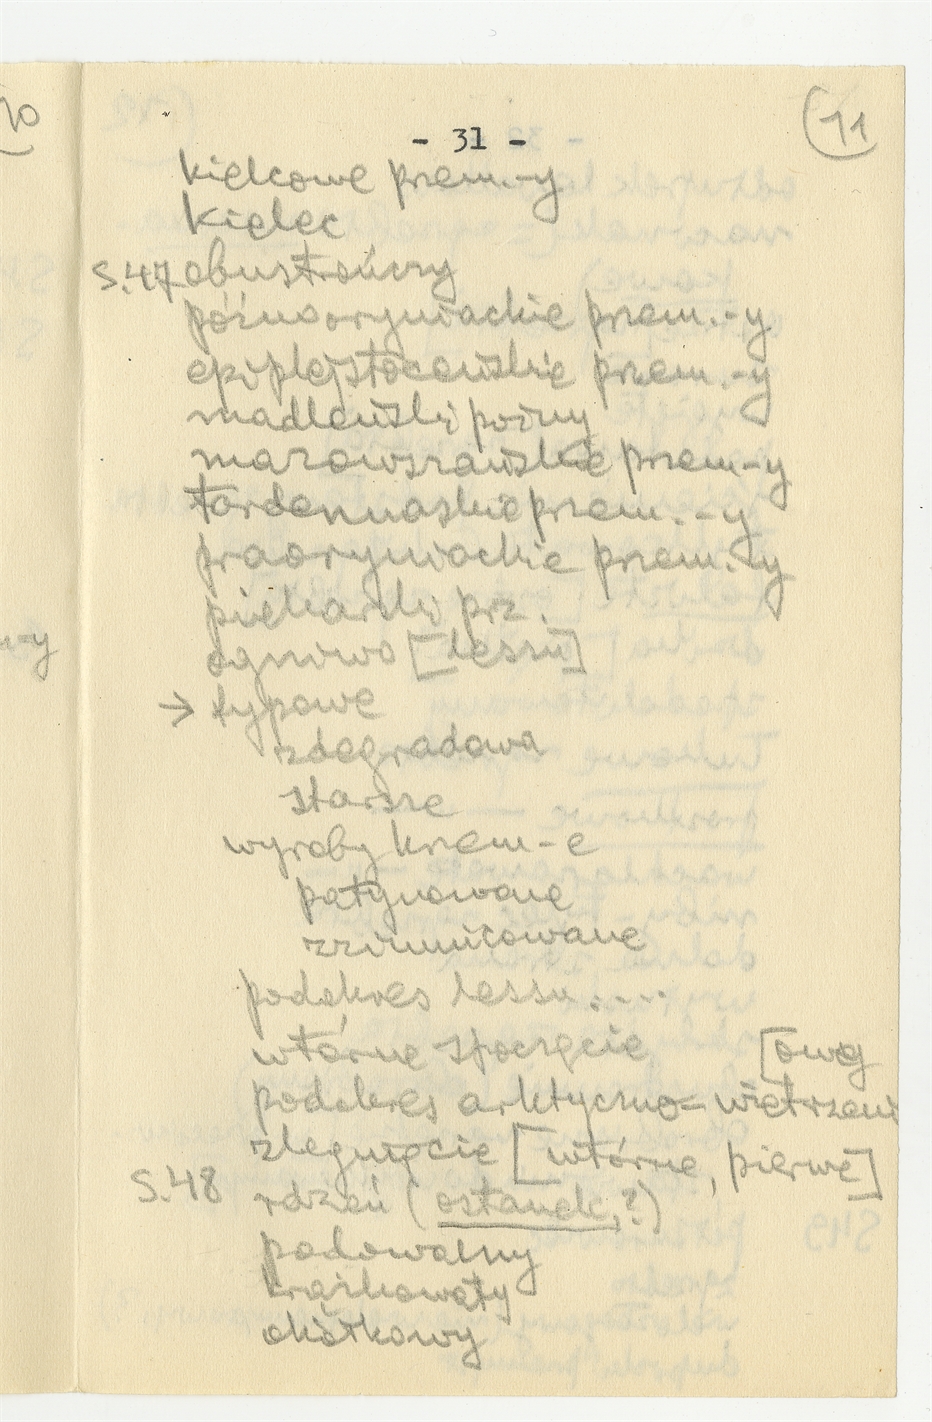 - 31 -
11
kielcowe przem.-y
kielec
S.47 obustrończy
późnooryniackie przem.-y
epiplejstoceńskie przem.-y
madleński późny
mazowszańskie przem-y
tardenuaskie przem.-y
praoryniackie przem.-y
piekarski prz.
ogniwo [lessu]
→ typowe
zdegradowa
starsze
wyroby krzem-e
patynowane
podokres lessu....
wtórne spoczęcie [owo
podokres arktyczno= wietrzeni
zlegnięcie [wtórne, pierwe]
S.48 rdzeń (ostanek,?)
podowalny
krążkowaty
okólkowy
10
-y